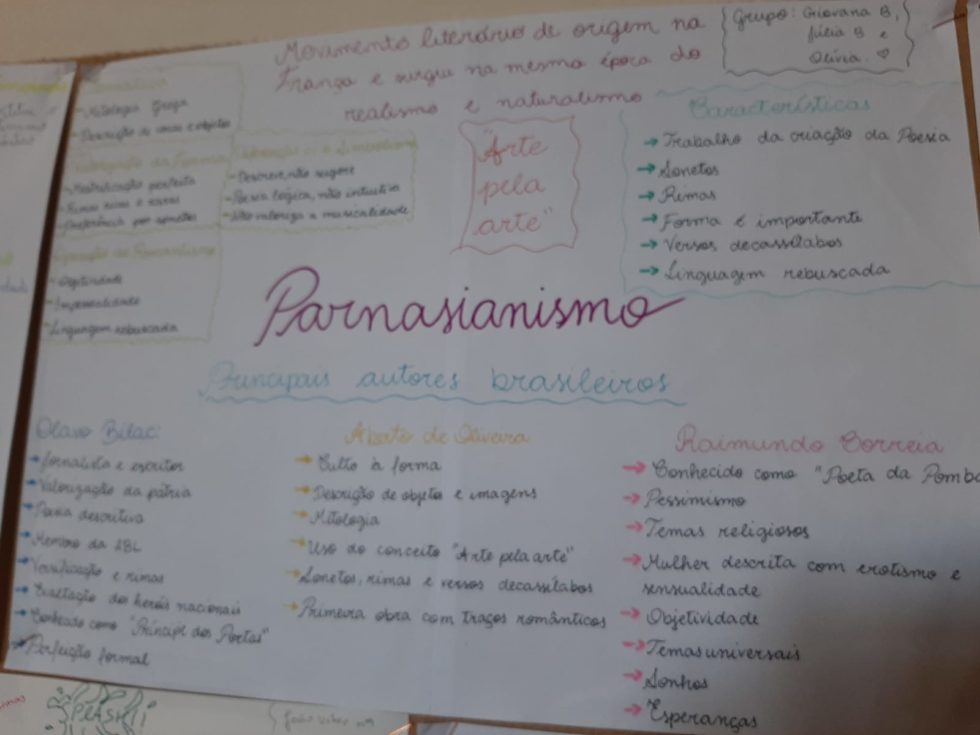 Movimento literário de origem na
França e surgiu na mesma época do
realismo e naturalismo
Grupo: Giovana B,
Júlia B e
Olívia. ♡
- Mitologia Grega
- Descrição de cenas e objetos
Valorização da Forma
- Metrificação perfeita
- Rimas ricas e raras
- Preferência por sonetos
- Descreve, não sugere
- Poesia lógica, não intuitiva
- Não valoriza a musicalidade
Romantismo
- Objetividade
- Impessoalidade
- Linguagem rebuscada
"Arte
pela
arte"
Características
→ Trabalho da criação da Poesia
→ Sonetos
→ Rimas
→ Forma é importante
→ Versos decassílabos
→ Linguagem rebuscada
Parnasianismo
Principais autores brasileiros
Olavo Bilac:
→ Jornalista e escritor
→ Valorização da pátria
→ Poesia descritiva
→ Membro da ABL
→ Versificação e rimas
→ Exaltação dos heróis nacionais
→ Conhecido como "Príncipe dos Poetas"
→ Perfeição formal
Alberto de Oliveira
→ Culto à forma
→ Descrição de objeto e imagens
→ Mitologia
→ Uso do conceito "Arte pela arte"
→ Sonetos, rimas e versos decassílabos
→ Primeira obra com traços românticos
Raimundo Correia
→ Conhecido como "Poeta da Pomba
→ Pessimismo
→ Temas religiosos
→ Mulher descrita com erotismo e
sensualidade
→ Objetividade
→ Temas universais
→ Sonhos
→ Esperanças
SPLASH!